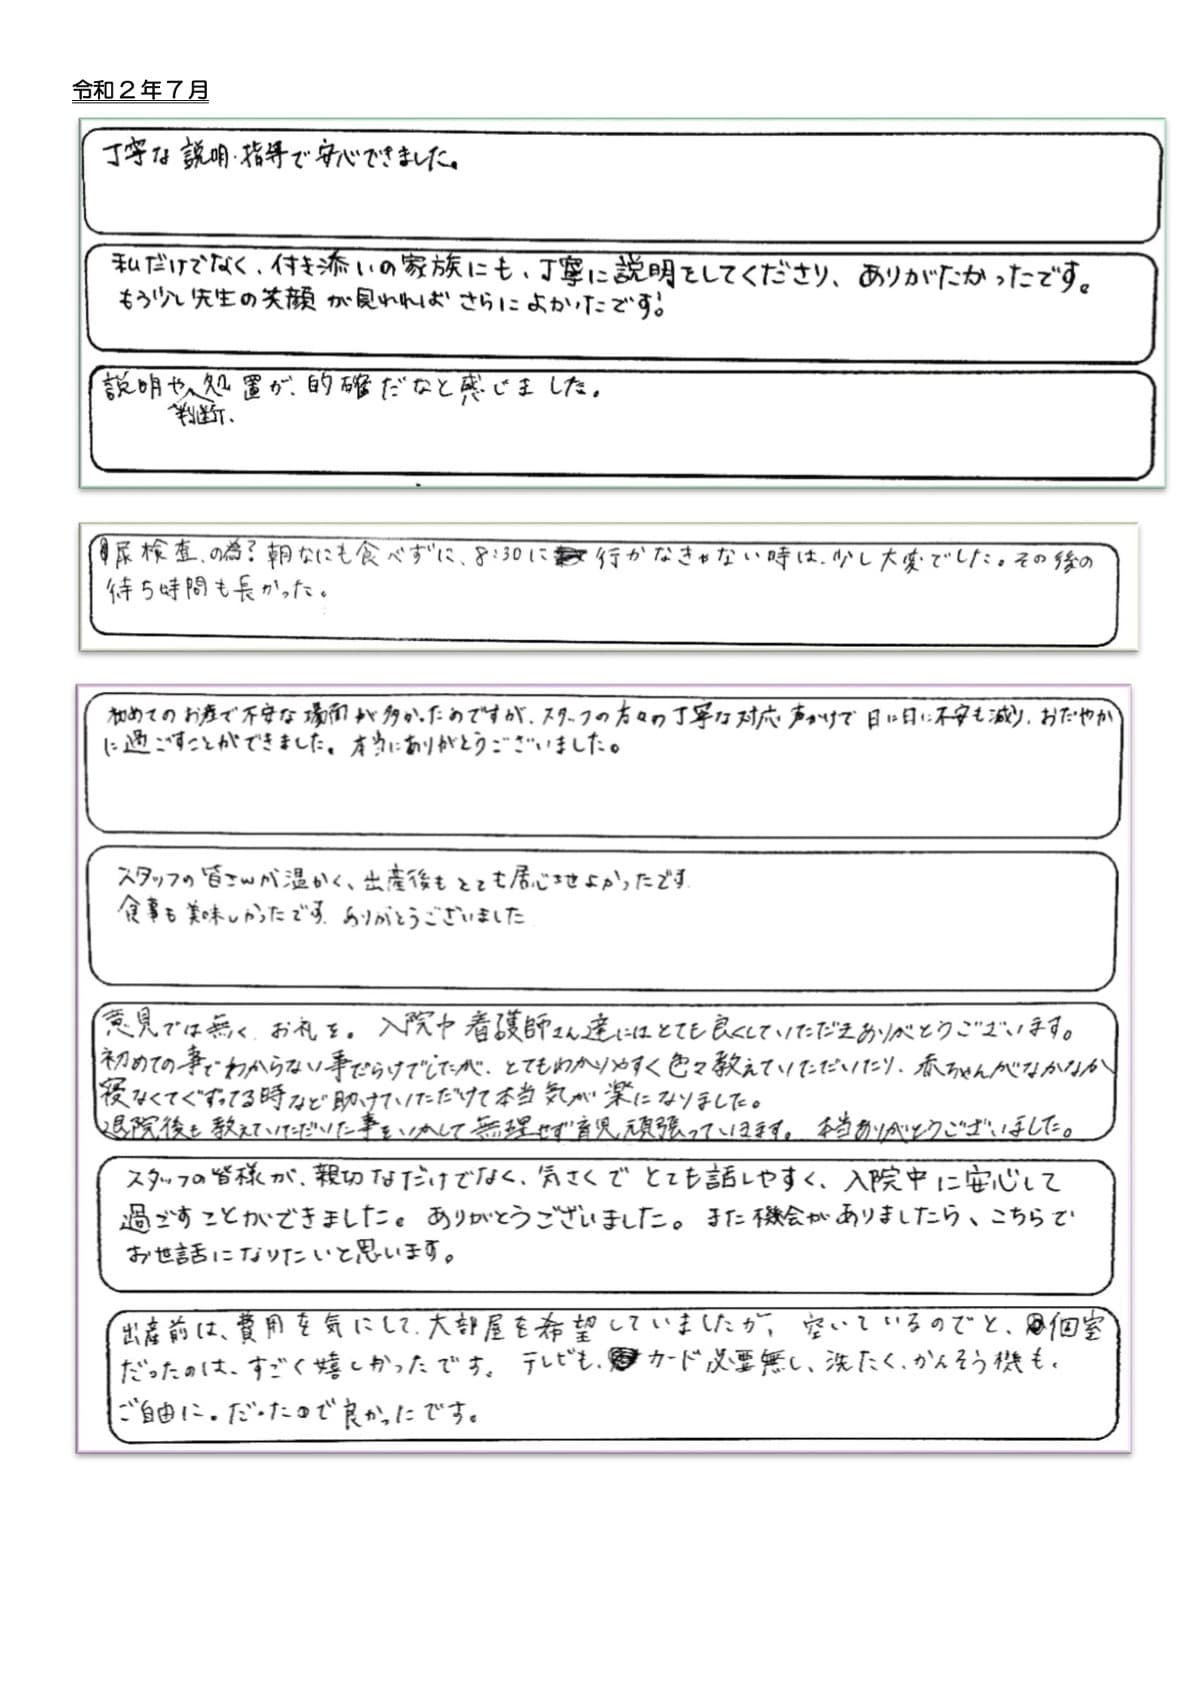 令和２年７月
丁寧な説明・指導で安心できました。
私だけでなく、付き添いの家族にも、丁寧に説明をしてくださり、ありがたかったです。
もう少し先生の笑顔が見れればさらによかったです!
説明や、処置が、的確だなと感じました。
判断、
尿検査、の為?朝なにも食べずに、8:30に行かなきゃない時は、少し大変でした。その後の
待ち時間も長かった。
初めてのお産で不安な場面が多かったのですが、スタッフの方々の丁寧な対応、声かけで日に日に不安も減り、おだやか
に過ごすことができました。本当にありがとうございました。
スタッフの皆さんが温かく、出産後もとても居心地よかったです
食事も美味しかったです ありがとうございました
意見では無く、お礼を。入院中看護師さん達にはとても良くしていただきありがとうございます。
初めての事でわからない事だらけでしたが、とてもわかりやすく色々教えていただいたり、赤ちゃんがなかなか
寝なくてぐずってる時など助けていただけて本当気が楽になりました。
退院後も教えていただいた事をいかして無理せず育児頑張っていきます。本当ありがとうございました。
スタッフの皆様が、親切なだけでなく、気さくでとても話しやすく、入院中に安心して
過ごすことができました。ありがとうございました。また機会がありましたら、こちらで
お世話になりたいと思います。
出産前は、費用を気にして、大部屋を希望していましたが、空いているのでと、個室
だったのは、すごく嬉しかったです。テレビも、カード必要無し、洗たく、かんそう機も、
ご自由に。だったので良かったです。